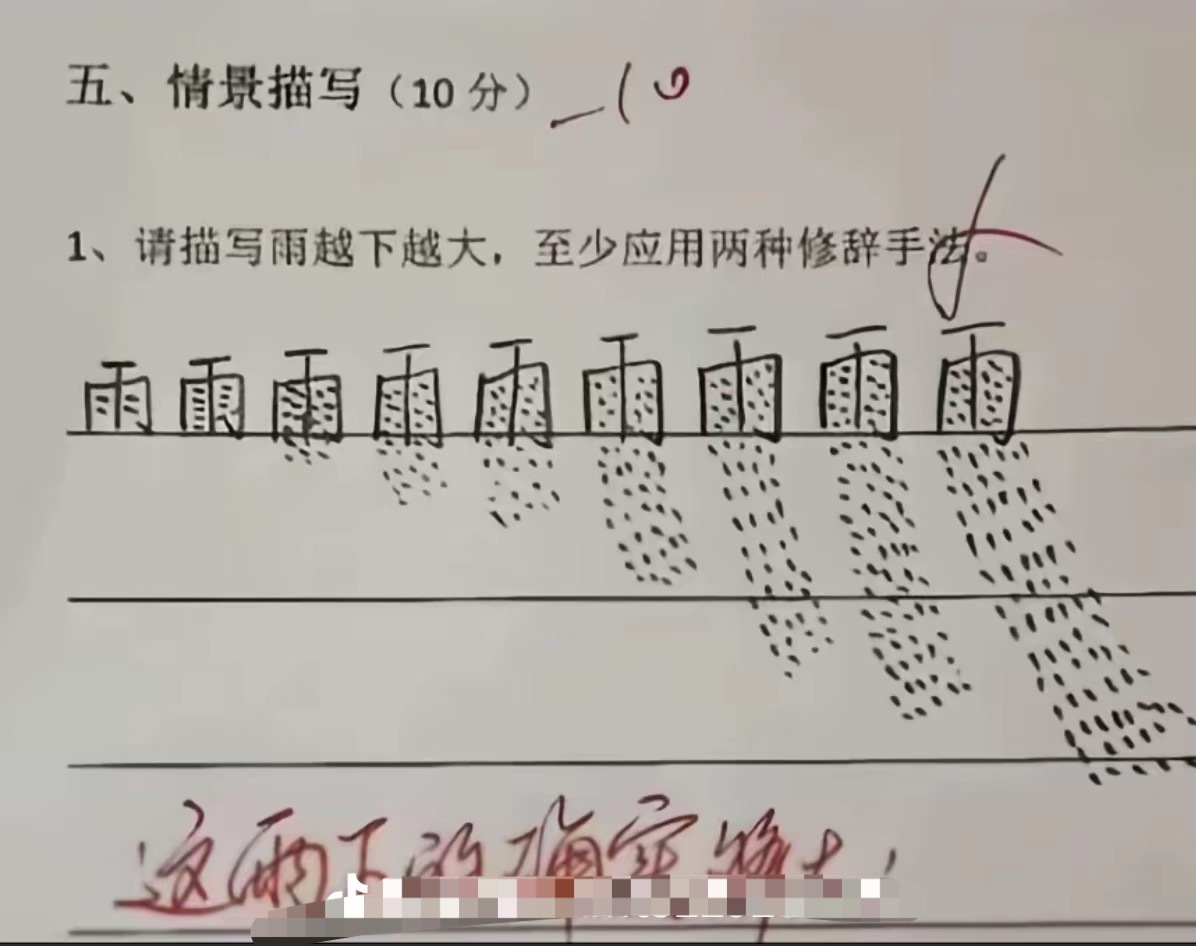 五、情景描写（10 分） -10
1、请描写雨越下越大，至少应用两种修辞手法。
雨雨雨雨雨雨雨雨雨
这雨下的确实够大！